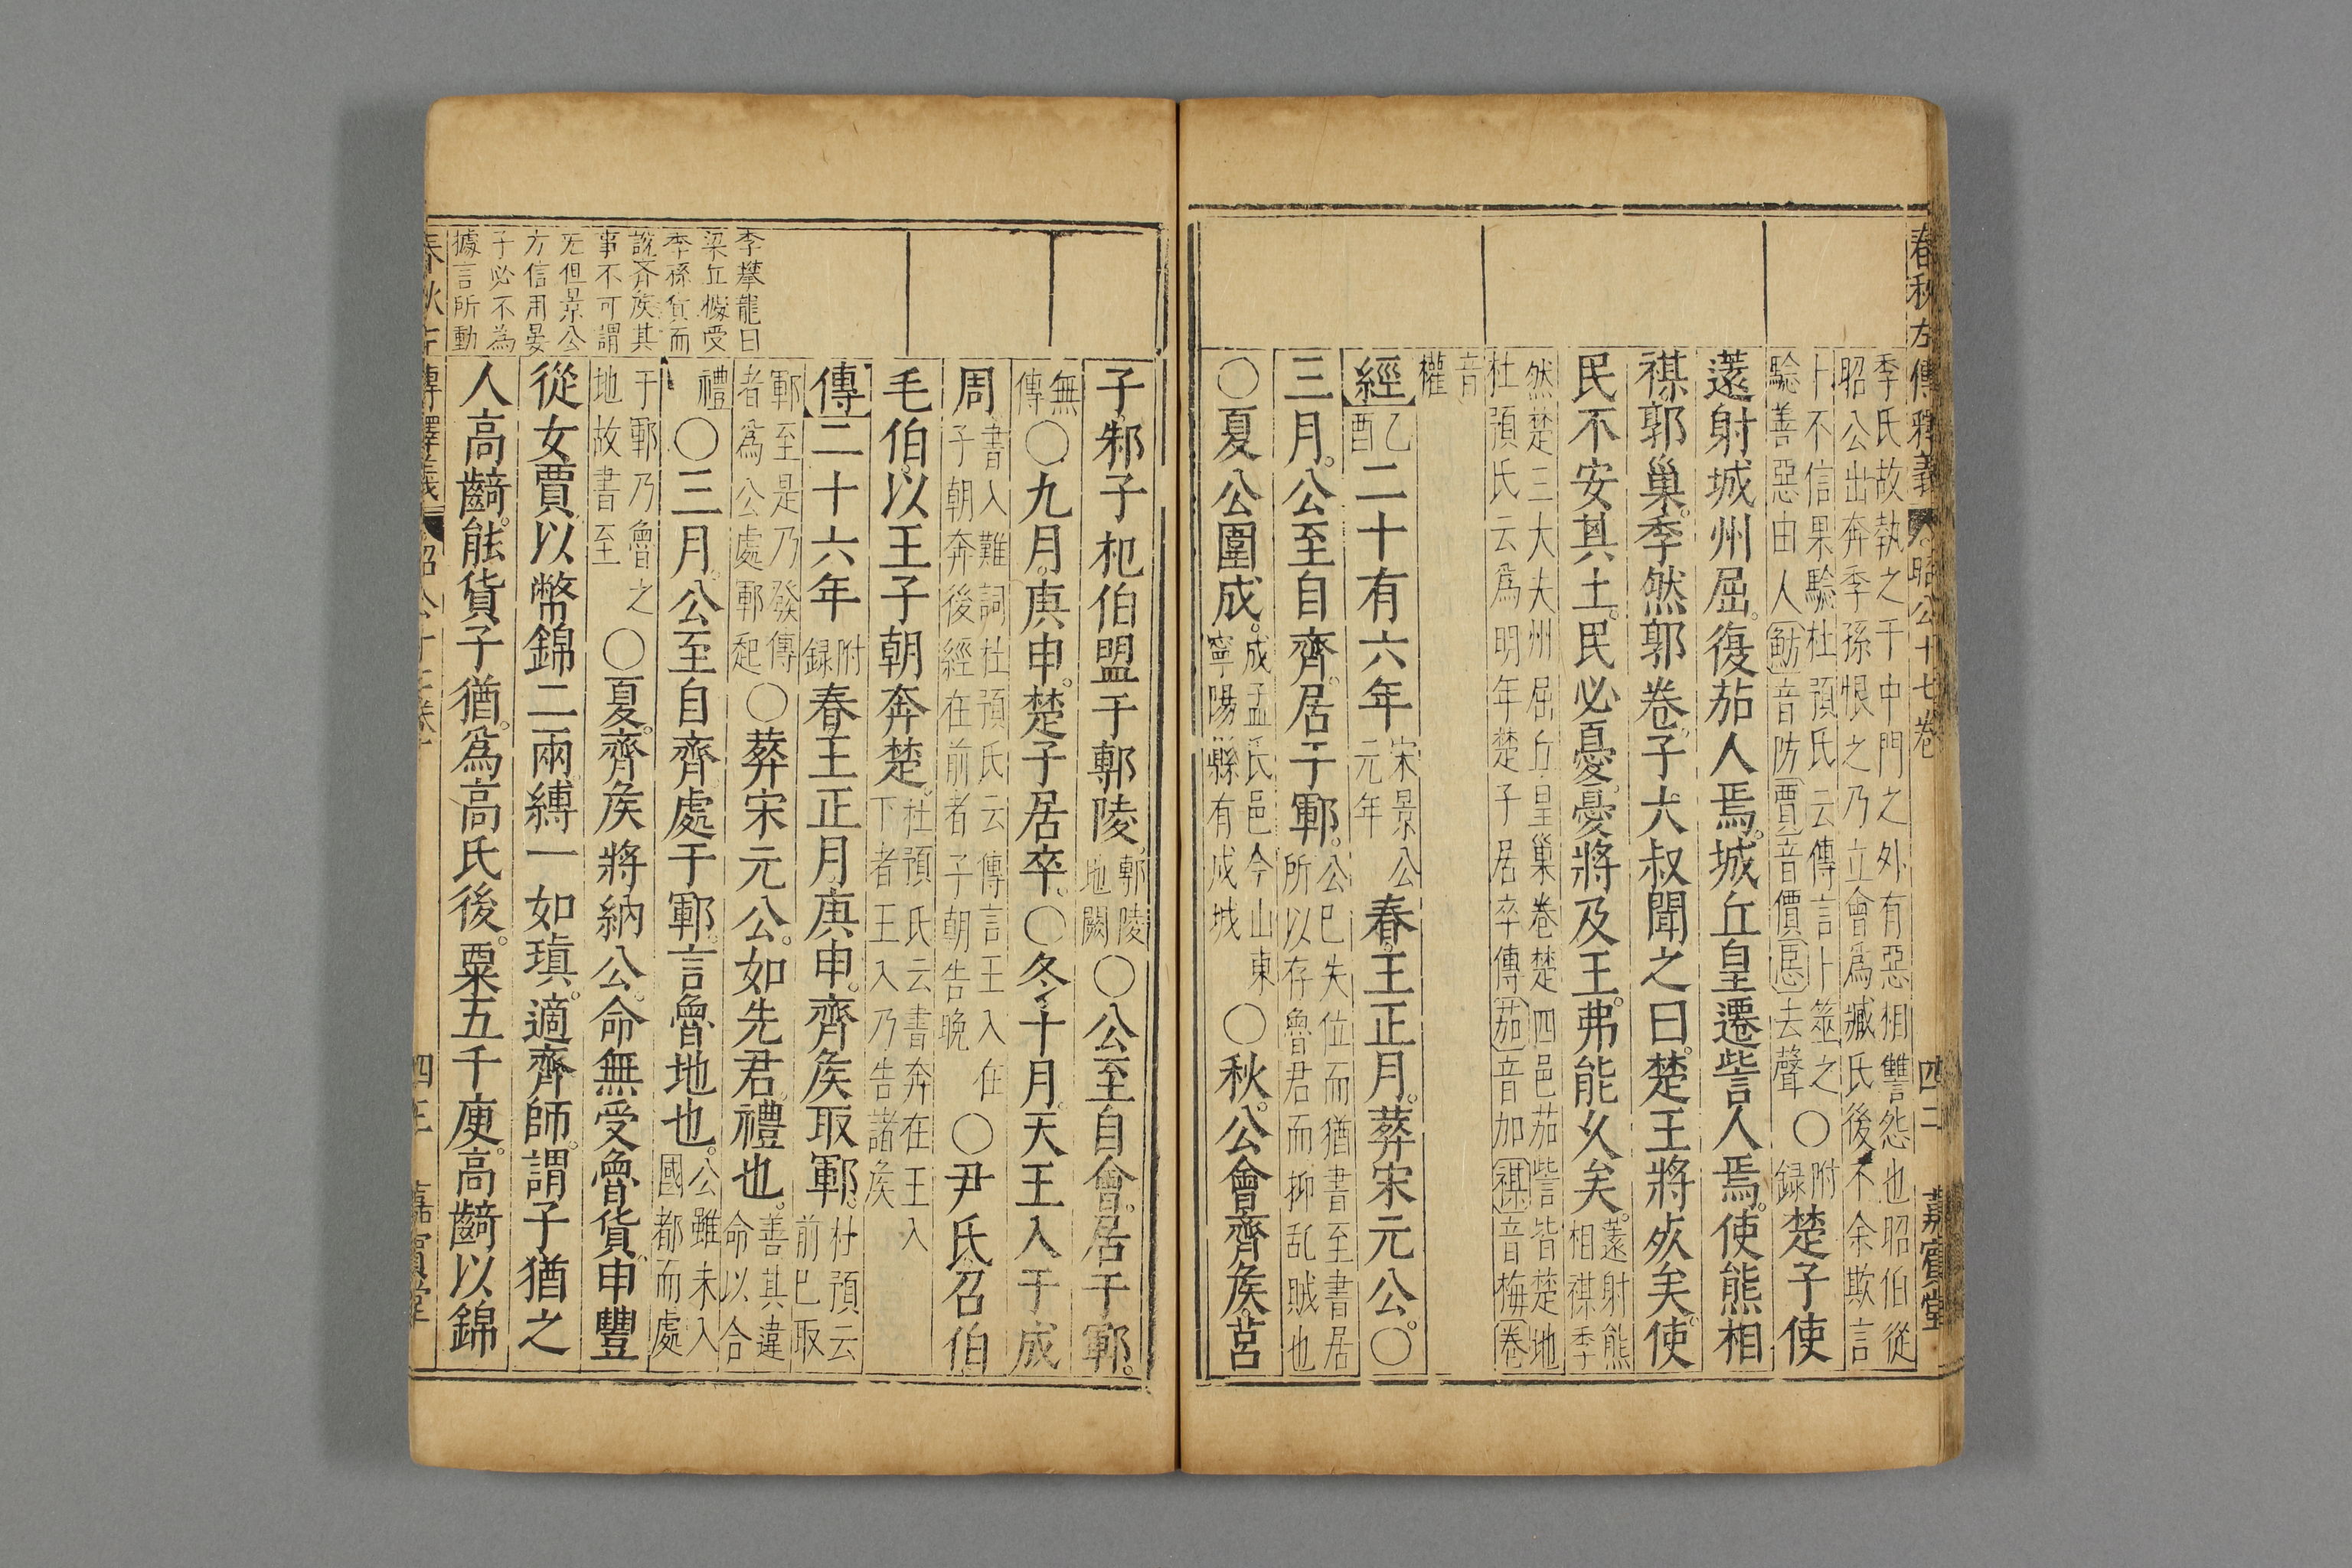 春秋左傳釋義 昭公十七卷 四三 嘉賓堂
季氏故執之于中門之外有惡相讐怨也昭伯從
昭公出奔季孫恨之乃立會爲臧氏後不余欺言
卜不信果驗杜預氏云傳言卜筮之
驗善惡由人魴音防賈音價慝去聲
○附録楚子使
薳射城州屈。復茄人焉。城丘皇遷訾人焉。使熊相
禖郭巢。季然郭卷。子大叔聞之曰。楚王將死矣。使
民不安其土。民必憂。憂將及王。弗能久矣。
薳射熊
相禖季
然楚三大夫州屈丘皇巢卷楚四邑茄訾皆楚地
杜預氏云爲明年楚子居卒傳茄音加禖音梅卷
音
權
經乙酉二十有六年宋景公元年春。王正月。葬宋元公。○
三月。公至自齊。居于鄆。公已失位而猶書至書居
所以存魯君而抑乱賊也
○夏公圍成。成孟氏邑今山東
寧陽縣有成城
○秋。公會齊矦。莒
子。邾子杞伯盟于鄟陵。鄟陵
地闕
○公至自會。居于鄆。
無
傳
○九月。庚申。楚子居卒。○冬。十月。天王入于成
周書入難詞杜預氏云傳言王入在
子朝奔後經在前者子朝告晚
○尹氏召伯
毛伯。以王子朝奔楚。杜預氏云書奔在王入
下者王入乃告諸矦
傳二十六年附録春王正月庚申。齊矦取鄆。杜預云
前已取
鄆至是乃發傳
者爲公處鄆起
○葬宋元公。如先君。禮也。善其違
命以合
禮
○三月。公至自齊。處于鄆。言魯地也。公雖未入
國都而處
于鄆乃魯之
地故書至
○夏。齊矦將納公。命無受魯貨。申豐
從女賈。以幣錦二兩縛一如瑱。適齊師。謂子猶之
人高齮。能貨子猶。爲高氏後。粟五千庾。高齮以錦
李攀龍曰
梁丘據受
季孫貨而
說齊矦其
事不可謂
无但景公
方信用晏
子必不為
據言所動